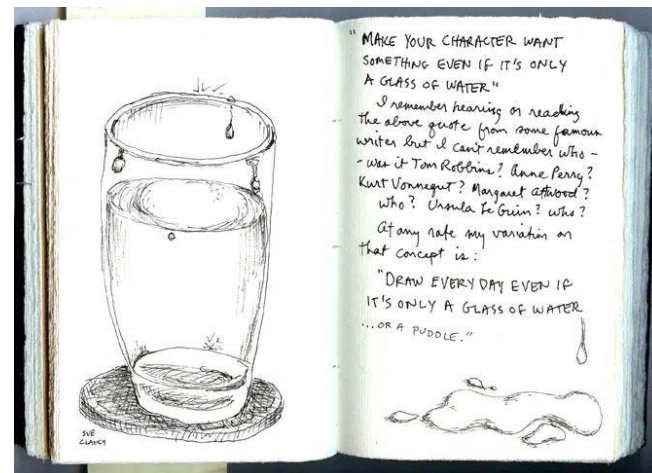 SUE
CLANCY
"MAKE YOUR CHARACTER WANT
SOMETHING EVEN IF IT'S ONLY
A GLASS OF WATER"
I remember hearing or reading
the above quote from some famous
writer but I can't remember who -
- was it Tom Robbins? Anne Perry?
Kurt Vonnegut? Margaret Attwood?
who? Ursula Le Guin? who?
At any rate my variation on
that concept is:
"DRAW EVERY DAY EVEN IF
IT'S ONLY A GLASS OF WATER
...OR A PUDDLE."